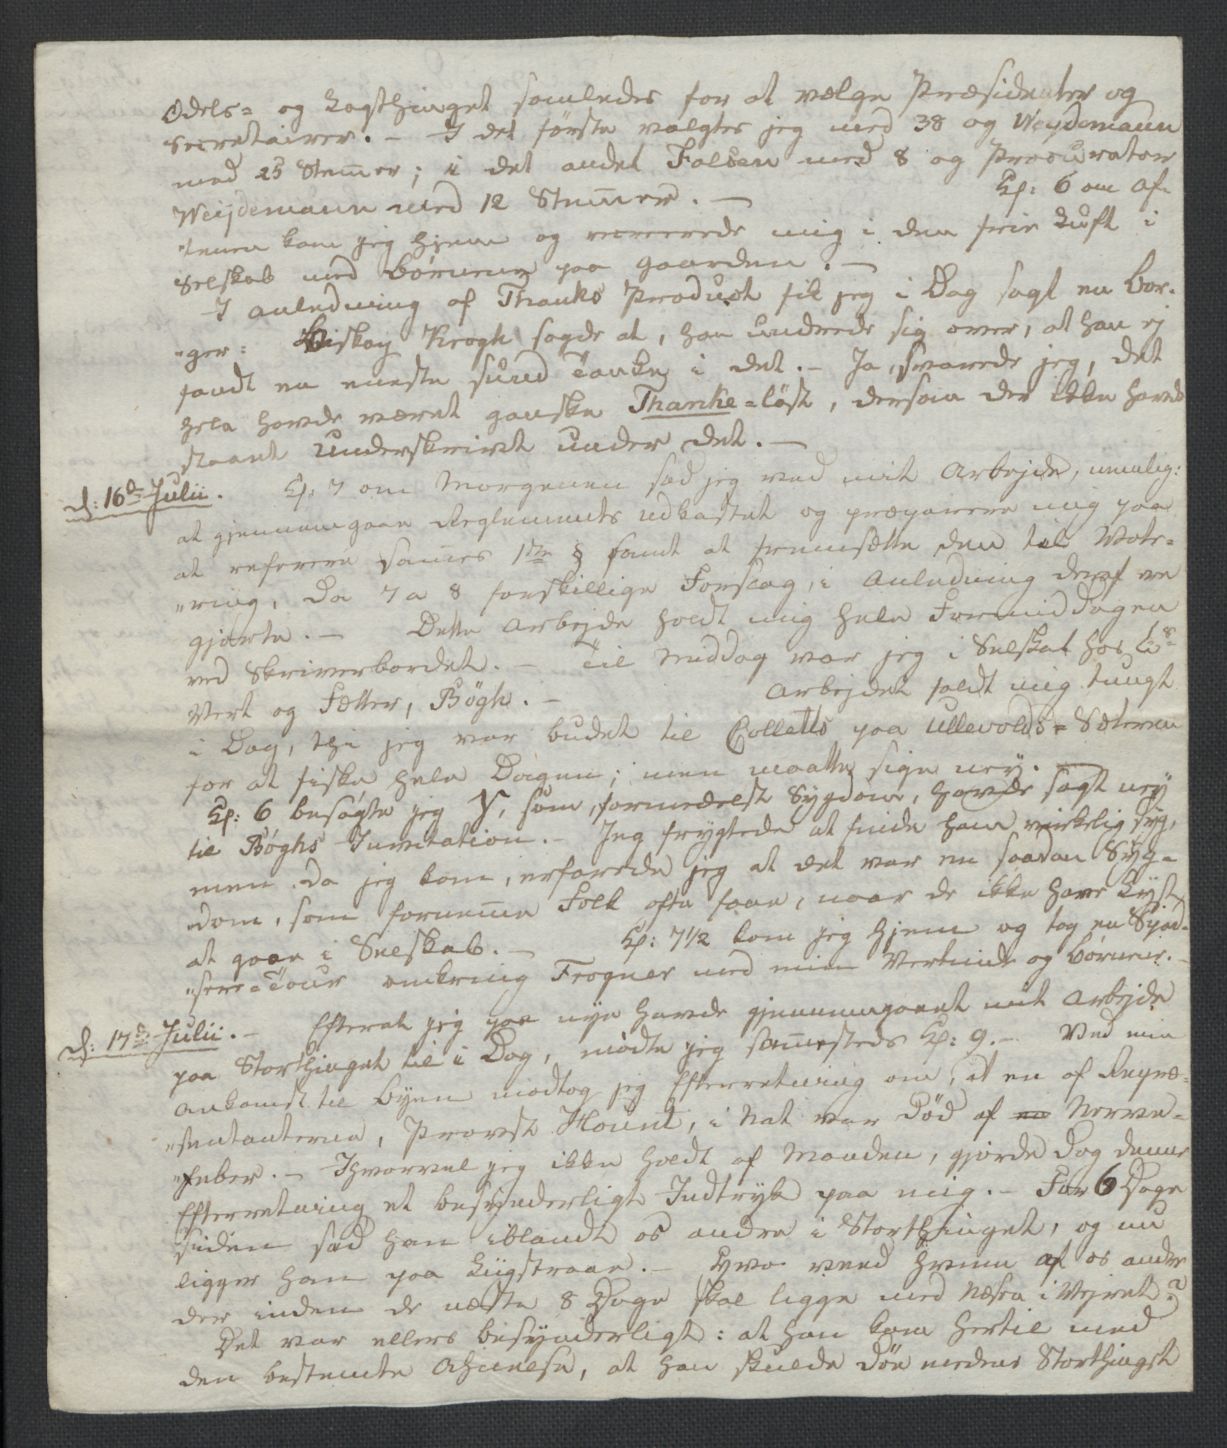 Odels= og Lagthinget samledes for at vælge Præsidenter og
Secretairer. – I det første valgtes jeg med 38 og Weydemann
med 25 Stem̄er; i det andet Falsen med 8 og Procurator
Weijdemann med 12 Stem̄er. — Kl: 6 om Af-
"tenen kom jeg hjem og mig i den frie Luft i
Selskab med Børnene paa Gaarden. —
I Anledning af Thanks Product fik jeg i Dag sagt en Bor-
"ger: Biskop Krogh sagde at, han undrede sig over, at han ej
fandt en eneste sund Tanke i det. – Ja, svarede jeg, det
hele havde været ganske Thanke=løst, dersom der ikke havde
staaet Underskrivt under det. —
d: 16de Julii. Kl: 7 om Morgenen sad jeg ved mit Arbejde, nemlig:
at gjennemgaae Reglements Udkastet og præparere mig paa
at referere sam̄es 1ste § samt at fremsætte den til Vote-
"ring, da 7 a 8 forskillige Forslag i Anledning deraf ere
gjorte. – Dette Arbejde holdt mig hele Formiddagen
ved Skriverbordet. – Til Middag var jeg i Selskab hos
Vert og Fætter, Bögh. – Arbejdet faldt mig tungt
i Dag, thi jeg var budet til Colletts paa Ullevolds=Sæteren
for at fiske hele Dagen; men maatte sige ney. —
Kl: 6 besøgte jeg Y, som, formedelst Sygdom, havde sagt ney
til Bøghs Invitation. – Jeg frygtede at finde ham virkelig syg,
men da jeg kom, erfarede jeg at det var en saadan Syg-
"dom, som fornem̄e Folk ofte faae, naar de ikke have Lyst
at gaae i Selskab. – Kl: 7½ kom jeg hjem og tog en Spad-
"sere=Tour omkring Frogner med min Vertinde og Børnene. –
d: 17de Julii. – Efterat jeg paa nye havde gjennemgaaet mit Arbejde
paa Storthinget til i Dag, mødte jeg sam̄esteds Kl: 9. – Ved min
Ankomst til Byen modtog jeg Efterretning om, at en af Repræ-
"sentanterne, Provst Hount, i Nat var død af Nerve-
"feber. – Ihvorvel jeg ikke holdt af Manden, gjorde dog denne
Efterretning et besynderligt Indtryk paa mig. – For 6 Dage
siden sad han iblandt os andre i Storthinget, og nu
ligger han paa Liigstraae. – Hvo veed hvem af os andre
der inden de næste 8 Dage skal ligge med Næsen i Vejret?
Det var ellers besynderligt: at han kom hertil med
den bestemte Ahnelse, at han skulde døe medens Storthinget